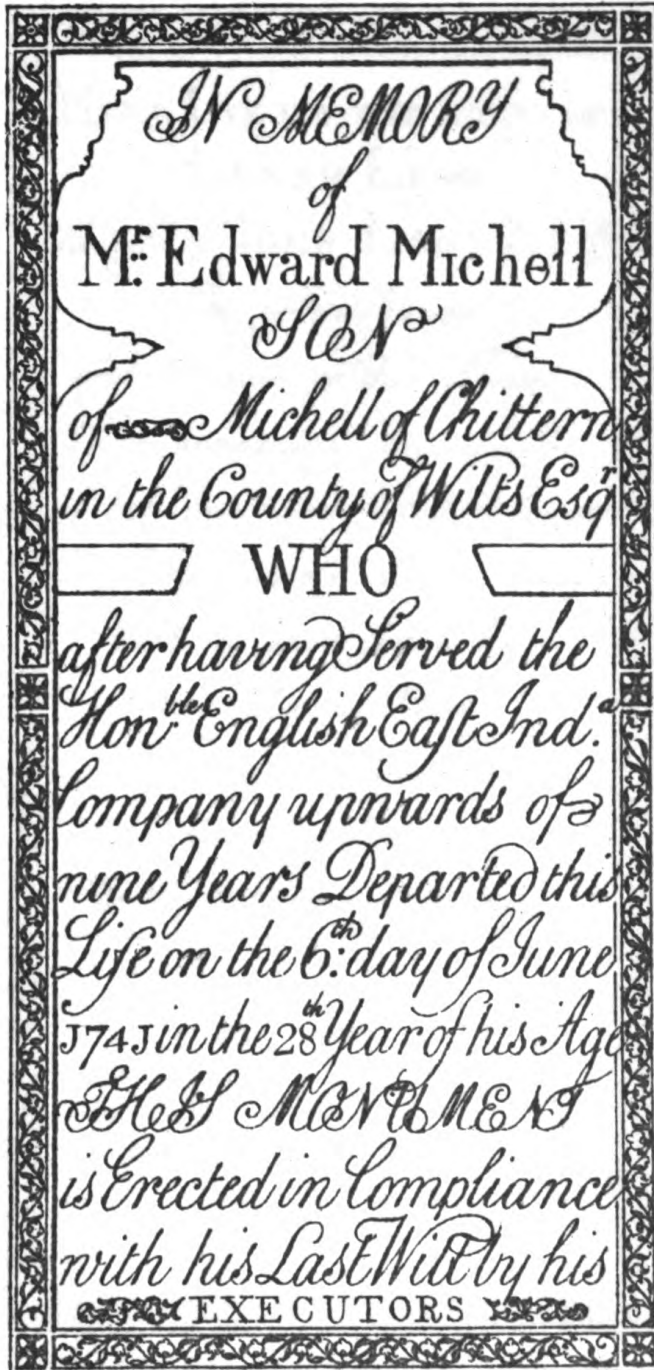 IN MEMORY
of
Mr. Edward Michell
SON
of Michell of Chittern
in the County of Wilts Esqr
WHO
after having Served the
Honble English Eaſt Inda.
Company upwards of
nine Years Departed this
Life on the 6th. day of June
J74J in the 28th Year of his Age
THIS MONUMENT
is Erected in Compliance
with his Last Will by his
EXECUTORS